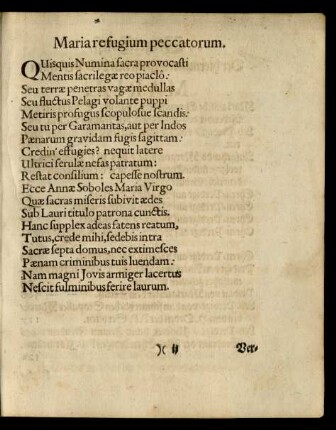 Maria refugium peccatorum.
QUisquis Numina sacra provocasti
Mentis sacrilegæ reo piaclô:
Seu terræ penetras vagæ medullas
Seu fluctus Pelagi volante puppi
Metiris profugus scopulosve scandis:
Seu tu per Garamantas, aut per Indos
Pænarum gravidam fugis sagittam:
Credin' effugies? nequit latere
Ultrici ferulæ nefas patratum:
Restat consilium: capesse nostrum.
Ecce Annæ Soboles Maria Virgo
Quæ sacras miseris subivit ædes
Sub Lauri titulo patrona cunctis.
Hanc supplex adeas fatens reatum,
Tutus, crede mihi, sedebis intra
Sacræ septa domus, nec extimesces
Pænam criminibus tuis luendam:
Nam magni Jovis armiger lacertus
Nescit fulminibus ferire laurum.
)( ij Ver-